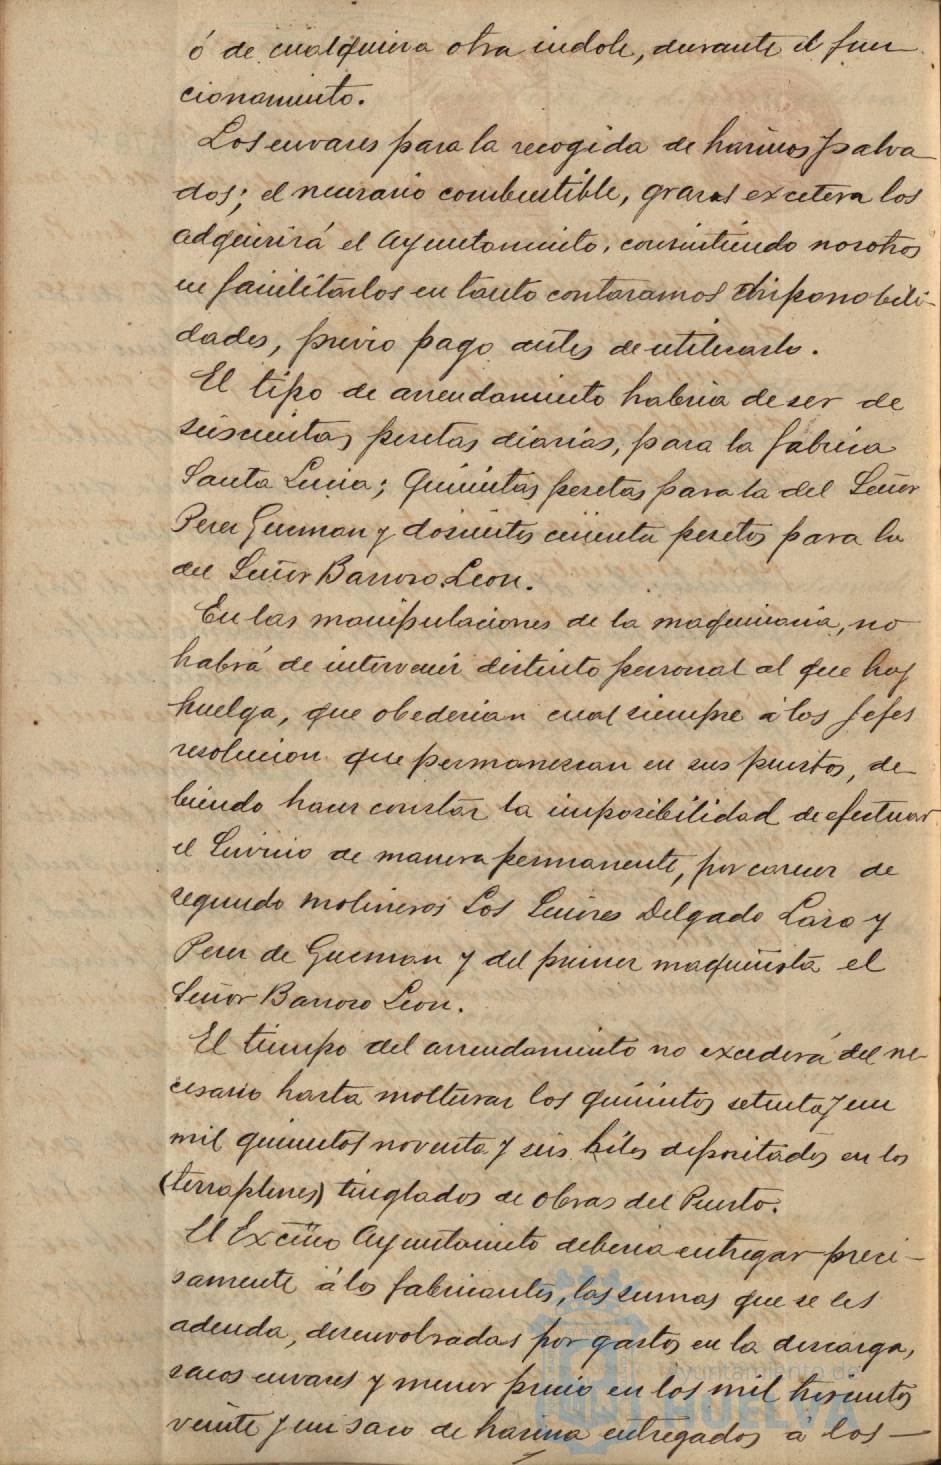 ó de cualquiera otra indole, durante el fun-
cionamiento.
Los envases para la recogida de harinas y salva-
dos; el necesario combustible, grasas excetera los
adquirirá el Ayuntamiento, consintiendo nosotros
en facilitarlos en tanto contaramos disponobili-
dades, previo pago antes de utilizarlo.
El tipo de arrendamiento habria de ser de
seiscientas pesetas diarias, para la fabrica
Santa Lucia; Quinientas pesetas para la del Señor
Perez Guzman y doscientos cincuenta pesetas para la
del Señor Barroso Leon.
En las manipulaciones de la maquinaria, no
habrá de intervenir distinto personal al que hoy
huelga, que obedecian cual siempre á los Jefes
resolucion que permanezcan en sus puestos, de-
biendo hacer constar la imposibilidad de efectuar
el Servicio de manera permanente, por carecer de
segundo molineros Los Señores Delgado Lazo y
Perez de Guzman y del primer maquinista el
Señor Barroso Leon.
El tiempo del arrendamiento no excederá del ne-
cesario hasta molturar los quinientos setenta y un
mil quinientos noventa y seis kilos depositados en los
(terraplenes) tinglados de obras del Puerto.
El Excmo Ayuntamiento deberia entregar preci-
samente á los fabricantes, las sumas que se les
adeuda, desembolsadas por gastos en la descarga,
sacos envases y menor precio en los mil trescientos
veinte y un saco de harina entregados á los —
Ayuntamiento de
HUELVA